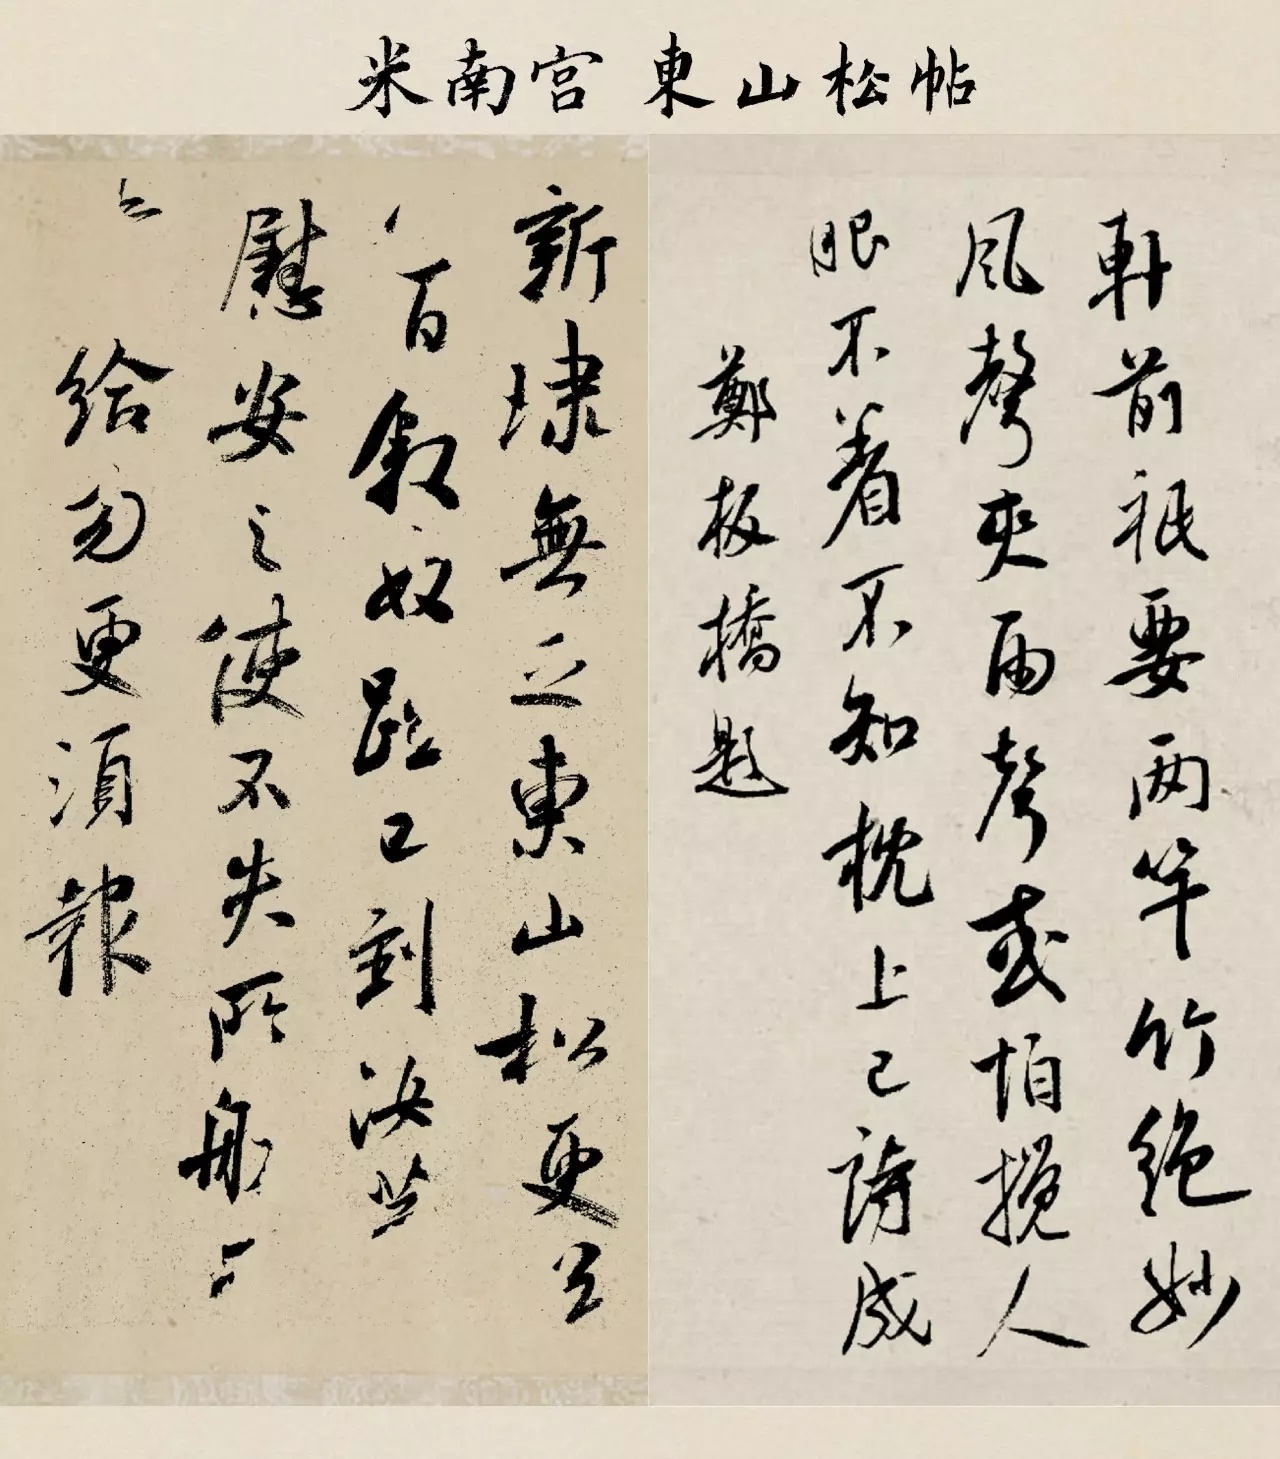 米南宫 東山松帖
軒前祇要两竿竹絶妙
風聲夾雨聲或怕攪人
眠不着不知枕上已詩成
鄭板橋題
新埭無之東山松更
百叙奴已到汝
慰安之使不失所
給勿更須報